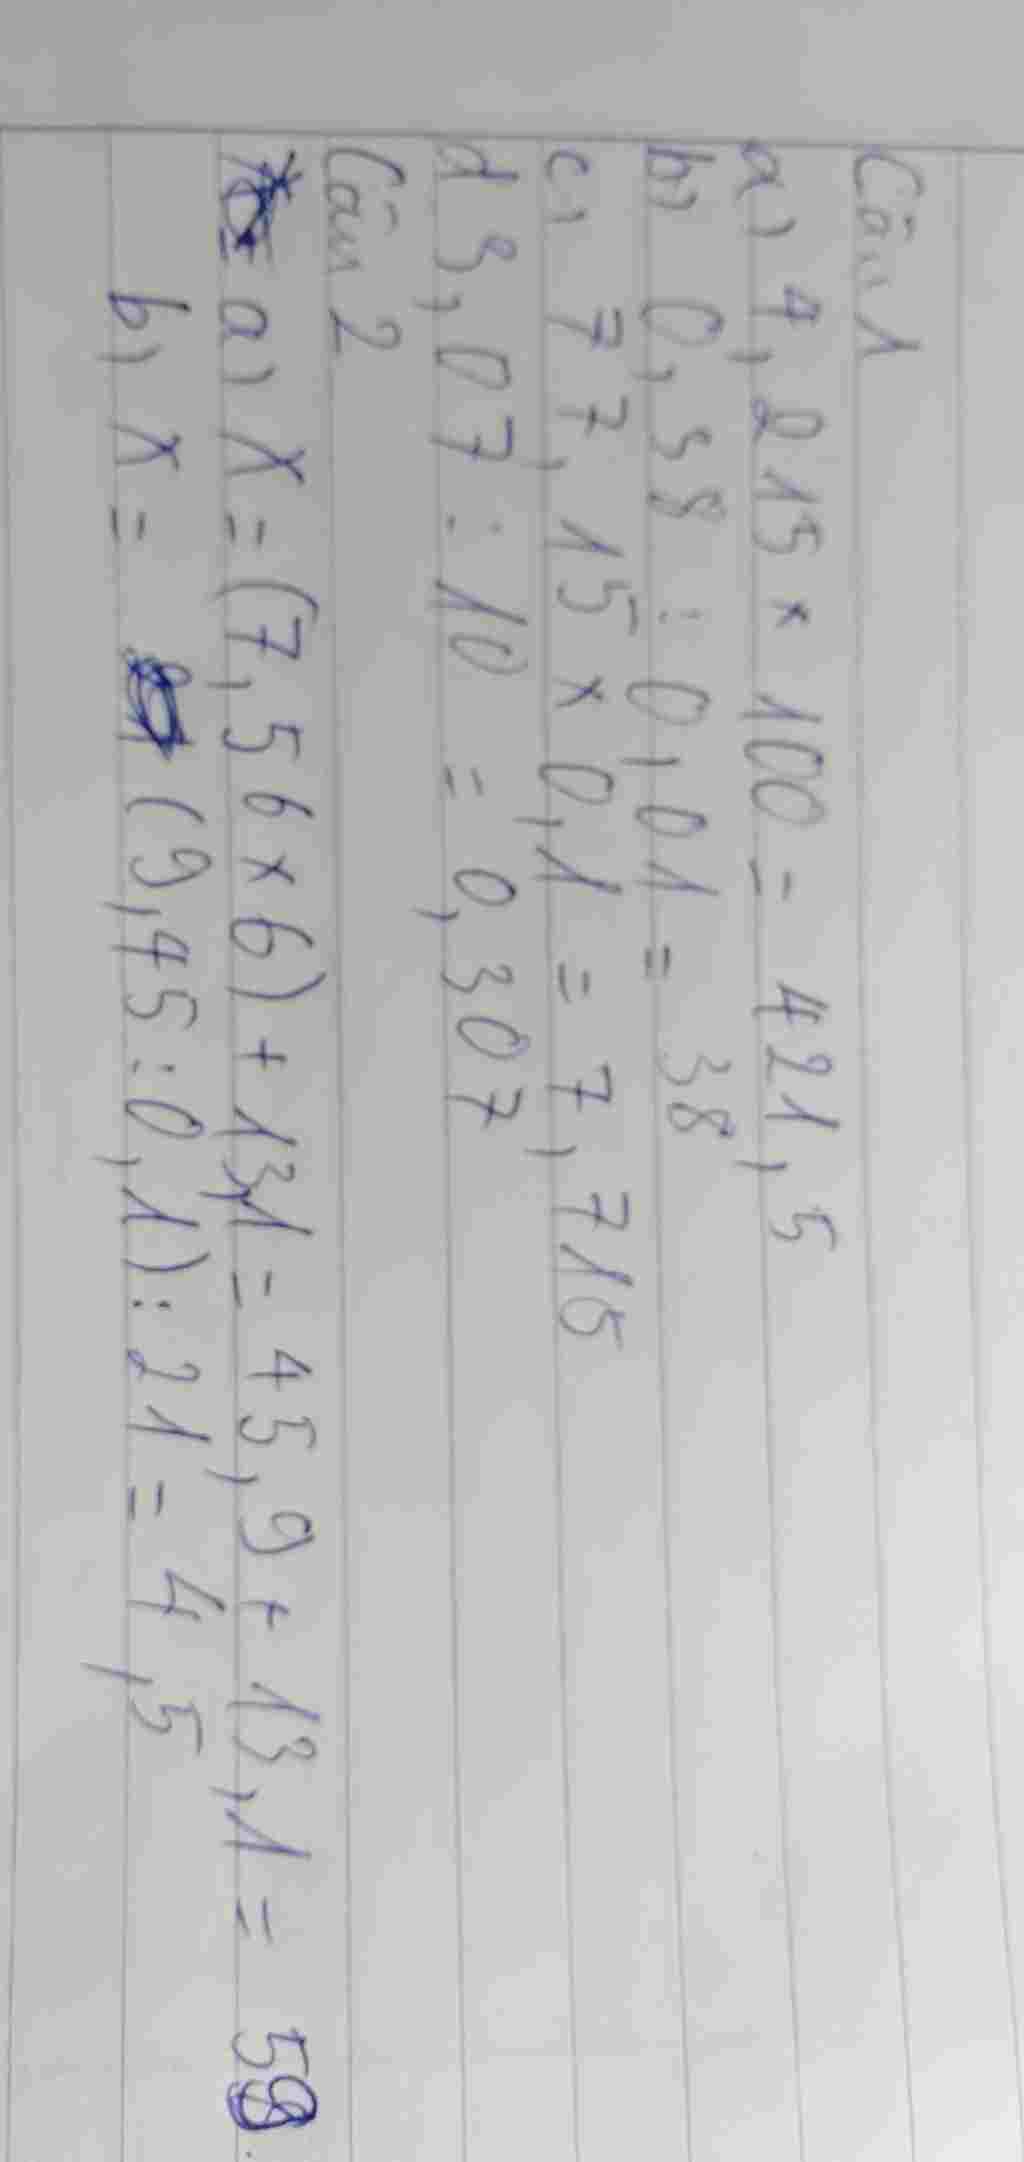 Câu 1
a) 4,215 × 100 = 421,5
b) 0,38 : 0,01 = 38
c) 77,15 × 0,1 = 7,715
d 3,07 : 10 = 0,307
Câu 2
a) X = (7,56 × 6) + 13,1 = 45,9 + 13,1 = 59
b) X = (9,45 : 0,1) : 21 = 4,5